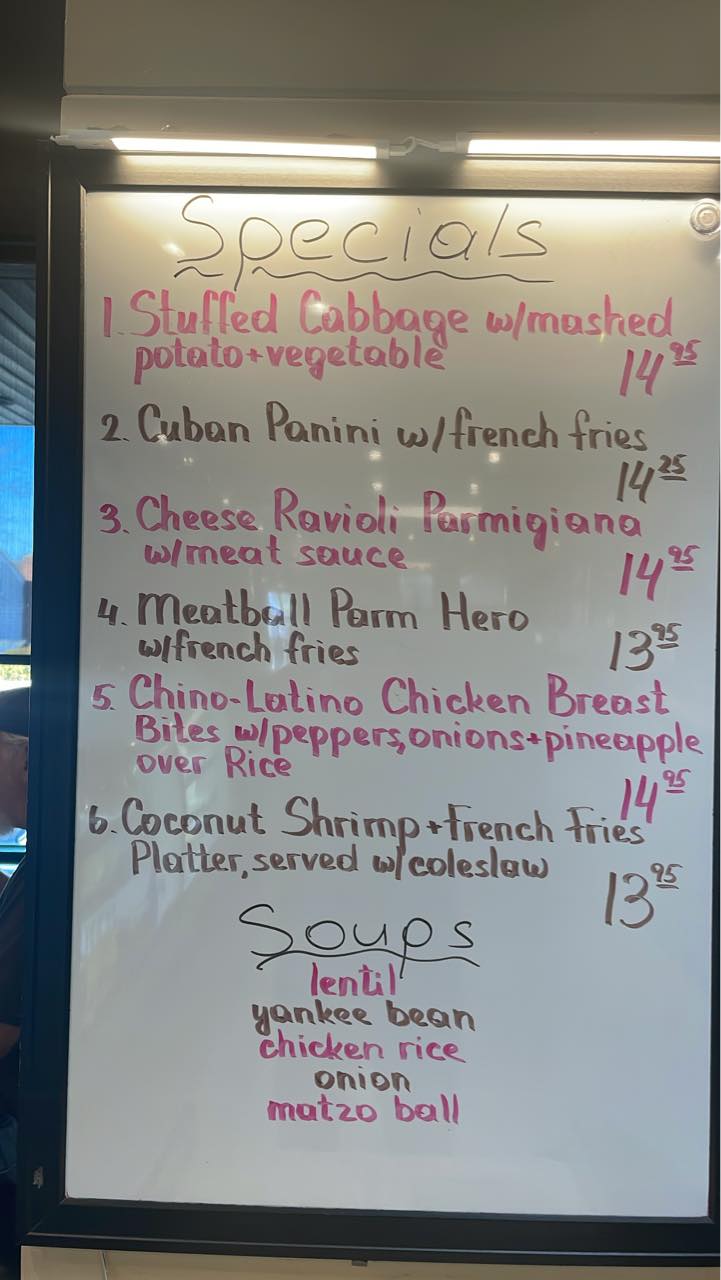 Specials
1. Stuffed Cabbage w/mashed
potato+vegetable 14 95
2. Cuban Panini w/french fries
14 25
3. Cheese Ravioli Parmigiana
w/meat sauce 14 95
4. Meatball Parm Hero
w/french fries 13 95
5. Chino-Latino Chicken Breast
Bites w/peppers, onions+pineapple
over Rice 14 95
6. Coconut Shrimp+French Fries
Platter, served w/coleslaw 13 95
Soups
lentil
yankee bean
chicken rice
onion
matzo ball